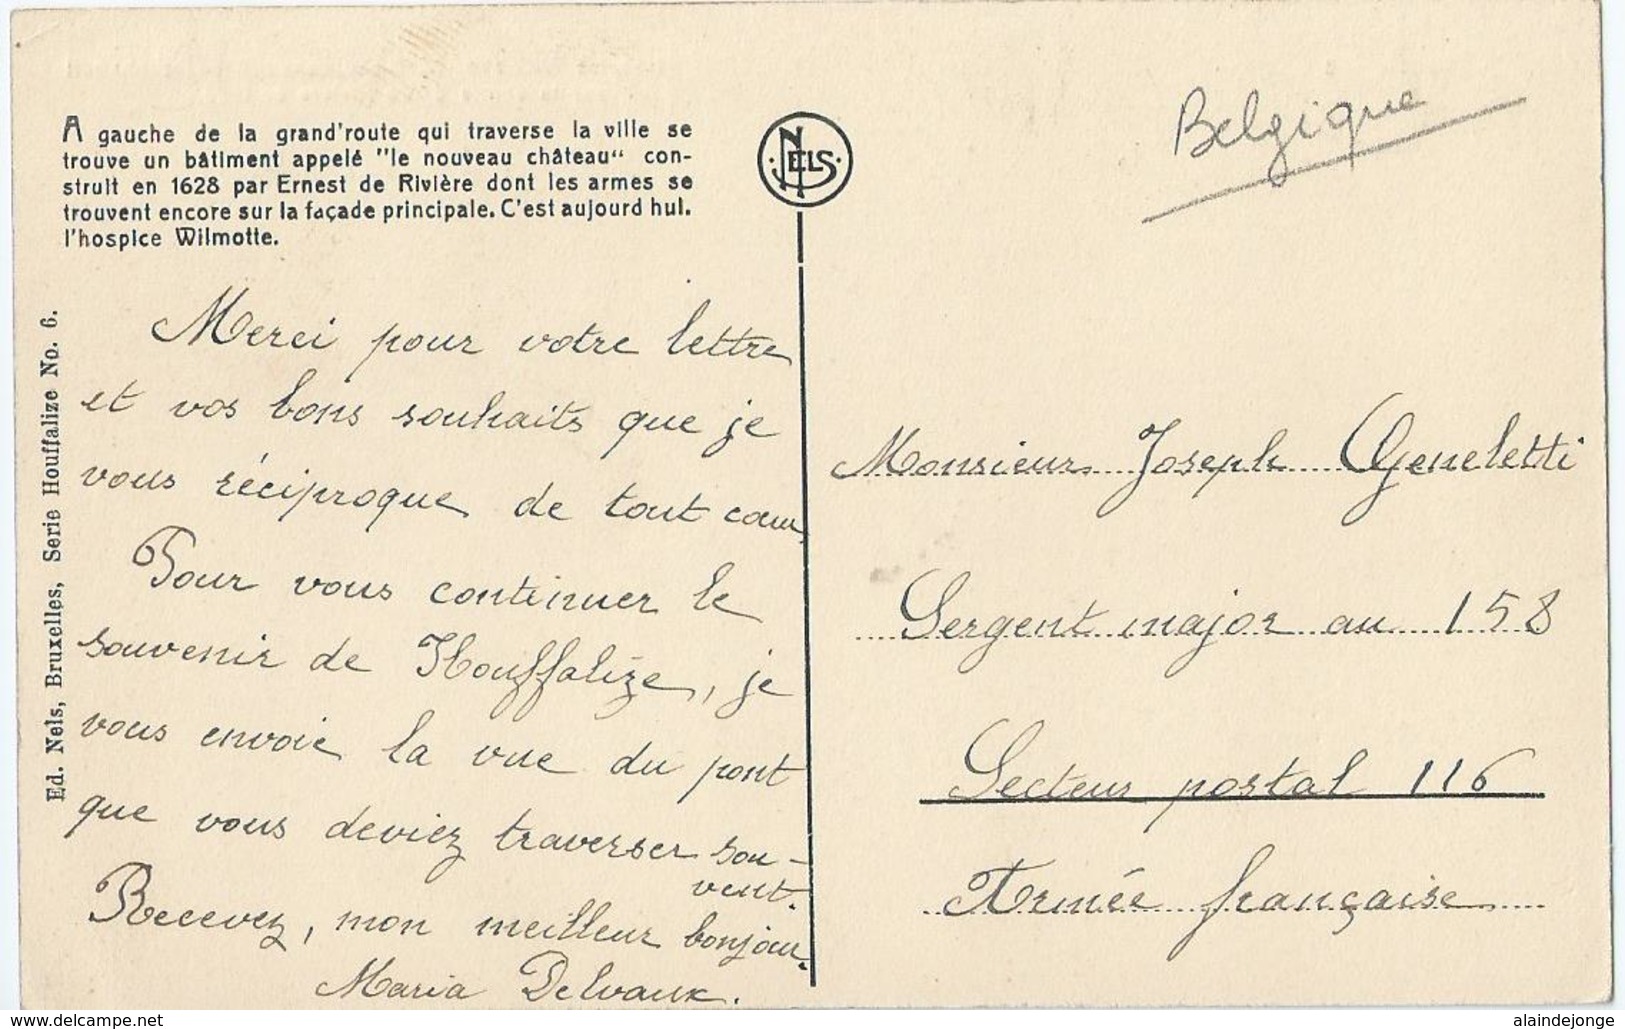 A gauche de la grand'route qui traverse la ville se
trouve un bâtiment appelé "le nouveau château" con-
struit en 1628 par Ernest de Rivière dont les armes se
trouvent encore sur la façade principale. C'est aujourd hui.
l'hospice Wilmotte.
NELS
Belgique
Ed. Nels, Bruxelles, Serie Houffalize No. 6.
Merci pour votre lettre
et vos bons souhaits que je
vous réciproque de tout cœur,
Pour vous continuer le
souvenir de Houffalize, je
vous envoie la vue du pont
que vous deviez traverser sou-
vent.
Recevez, mon meilleur bonjour.
Maria Delvaux.
Monsieur Joseph Geneletti
Sergent major au 158
Secteur postal 116
Armée française
https://www.delcampe.net/
alaindejonge